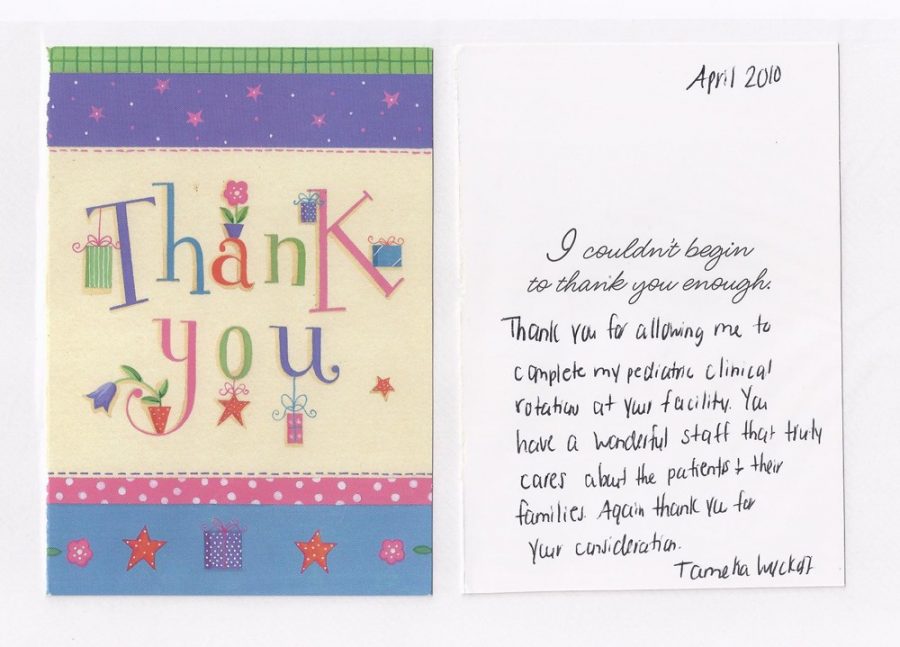 Thank
you
April 2010
I couldn't begin
to thank you enough.
Thank you for allowing me to
complete my pediatric clinical
rotation at your facility. You
have a wonderful staff that truly
cares about the patients + their
families. Again thank you for
your consideration.
Tameka Wyckoff